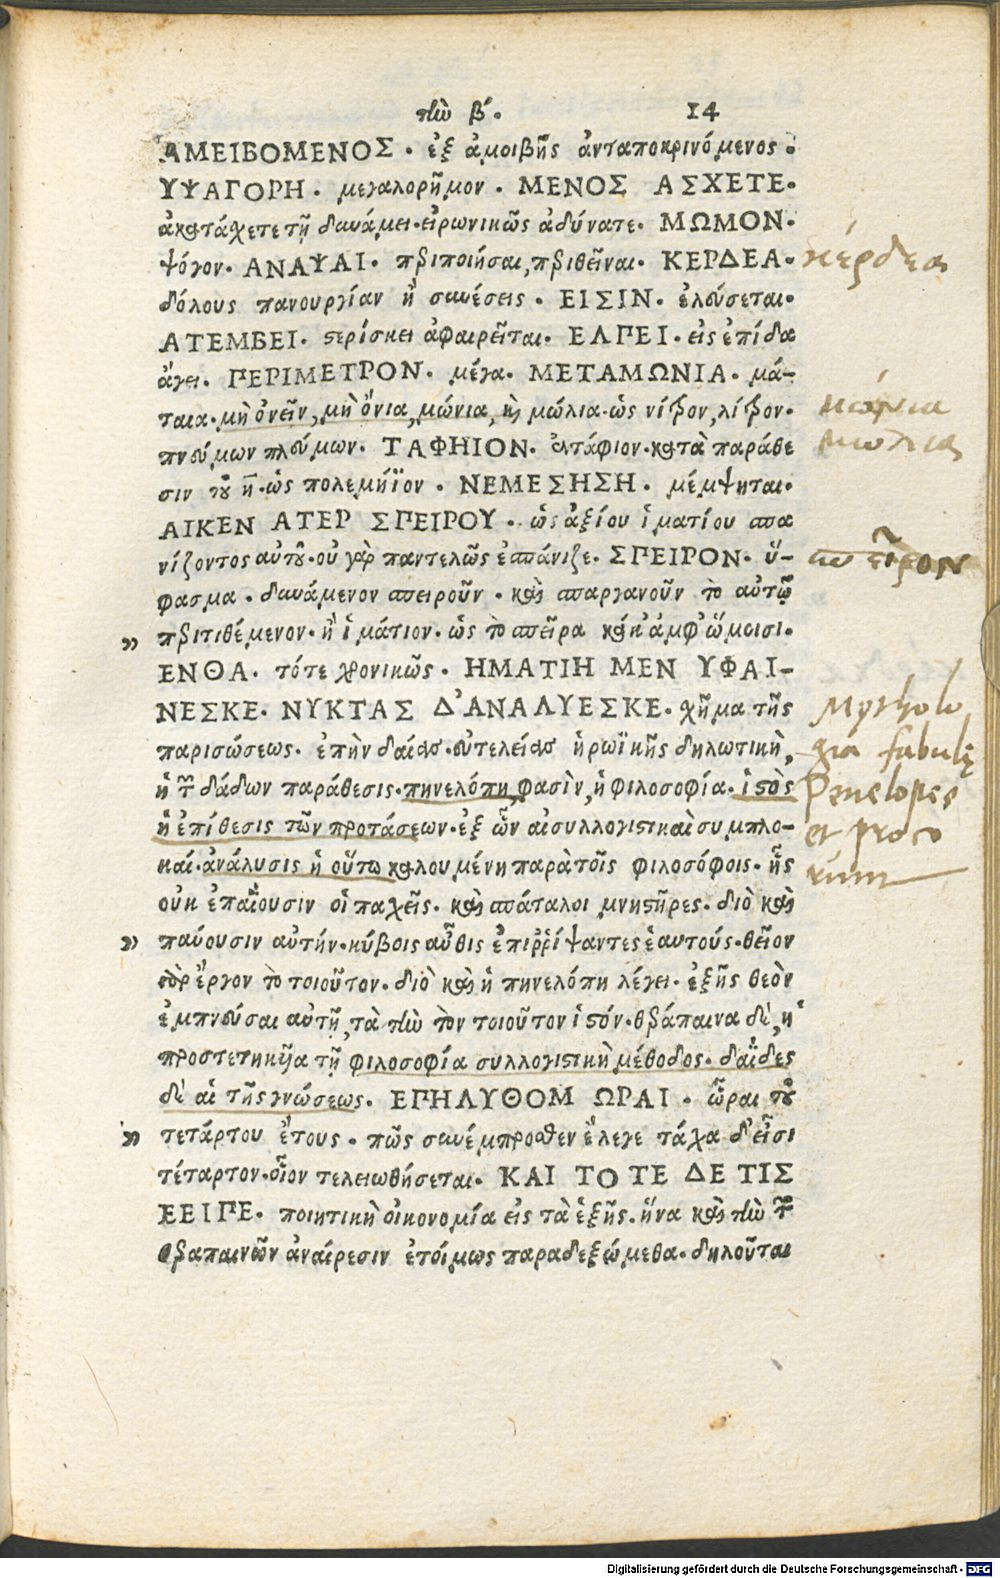 τὼ β΄. 14
ΑΜΕΙΒΟΜΕΝΟΣ · ἐξ ἀμοιβῆς ἀνταποκρινόμενος ·
ΥΨΑΓΟΡΗ · μεγαλορῆμον · ΜΕΝΟΣ ΑΣΧΕΤΕ·
ἀκατάχετε τῇ δυνάμει·εἰρωνικῶς ἀδύνατε· ΜΩΜΟΝ·
ψόγον· ΑΝΑΨΑΙ · περιποιῆσαι, περιθεῖναι· ΚΕΡΔΕΑ·
δόλους πανουργίαν ἢ συνέσεις · ΕΙΣΙΝ · ἐλεύσεται·
ΑΤΕΜΒΕΙ · στερίσκει ἀφαιρεῖται· ΕΛΠΕΙ · εἰς ἐπίδα
ἄγει · ΠΕΡΙΜΕΤΡΟΝ · μέγα· ΜΕΤΑΜΩΝΙΑ · μά-
ταια·μὴ ὀνεῖν, μὴ ὄνια, μώνια, καὶ μώλια·ὡς νίτρον, λίτρον·
πνεύμων πλεύμων· ΤΑΦΗΙΟΝ · ἐντάφιον·κατὰ παράθε
σιν τοῦ η·ὡς πολεμήϊον · ΝΕΜΕΣΗΣΗ · μέμψηται·
ΑΙΚΕΝ ΑΤΕΡ ΣΠΕΙΡΟΥ · ὡς ἀξίου ἱματίου σπα
νίζοντος αὐτοῦ·οὐ γὰρ παντελῶς ἐσπάνιζε· ΣΠΕΙΡΟΝ · ὕ-
φασμα · δυνάμενον σπειροῦν · καὶ σπαργανοῦν τὸ αὐτῷ
„ περιτιθέμενον·ἢ ἱμάτιον·ὡς τὸ σπεῖρα κάκ' ἀμφ' ὤμοισι·
ΕΝΘΑ · τότε χρονικῶς · ΗΜΑΤΙΗ ΜΕΝ ΥΦΑΙ-
ΝΕΣΚΕ· ΝΥΚΤΑΣ Δ' ΑΝΑΛΥΕΣΚΕ· χῆμα τῆς
παρισώσεως· ἐπὴν δαίσο·εὐτελείσο ἡρωϊκῆς δηλωτικὴ,
ἡ τῶν δάδων παράθεσις·πηνελόπη, φασὶν, ἡ φιλοσοφία·ἱστὸς
ἡ ἐπίθεσις τῶν προτάσεων·ἐξ ὧν αἱ συλλογιστικαὶ συμπλο-
καί·ἀνάλυσις ἡ οὕτω καλουμένη παρὰ τοῖς φιλοσόφοις· ἧς
οὐκ ἐπαΐουσιν οἱ παχεῖς· καὶ σπάταλοι μνηστῆρες· διὸ καὶ
„ παύουσιν αὐτήν·κύβοις αὖθις ἐπιῤῥίψαντες ἑαυτούς·θεῖον
γὰρ ἔργον τὸ τοιοῦτον·διὸ καὶ ἡ πηνελόπη λέγει·ἐξῆς θεὸν
ἐμπνεῦσαι αὐτῇ, τὰ τὼ τὸν τοιοῦτον ἱστόν·θεράπαινα δὲ, ἡ
προστετηκυῖα τῇ φιλοσοφίᾳ συλλογιστικὴ μέθοδος·δαΐδες
δὲ αἱ τῆς γνώσεως· ΕΠΗΛΥΘΟΜ ΩΡΑΙ · ὧραι τοῦ
„ τετάρτου ἔτους · πῶς συνέμπροσθεν ἔλεγε τάχα δ' εἶσι
τέταρτον·οἷον τελειωθήσεται· ΚΑΙ ΤΟΤΕ ΔΕ ΤΙΣ
ΕΕΙΠΕ· ποιητικὴ οἰκονομία εἰς τὰ ἑξῆς·ἵνα καὶ τὼ τῶν
θεραπαινῶν ἀναίρεσιν ἑτοίμως παραδεξώμεθα·δηλοῦται
κέρδεα
μώνια
μωλια
σπεῖρον
Mytholo
gia fabulę
Penelopes
et proco
rum
Digitalisierung gefördert durch die Deutsche Forschungsgemeinschaft - DFG